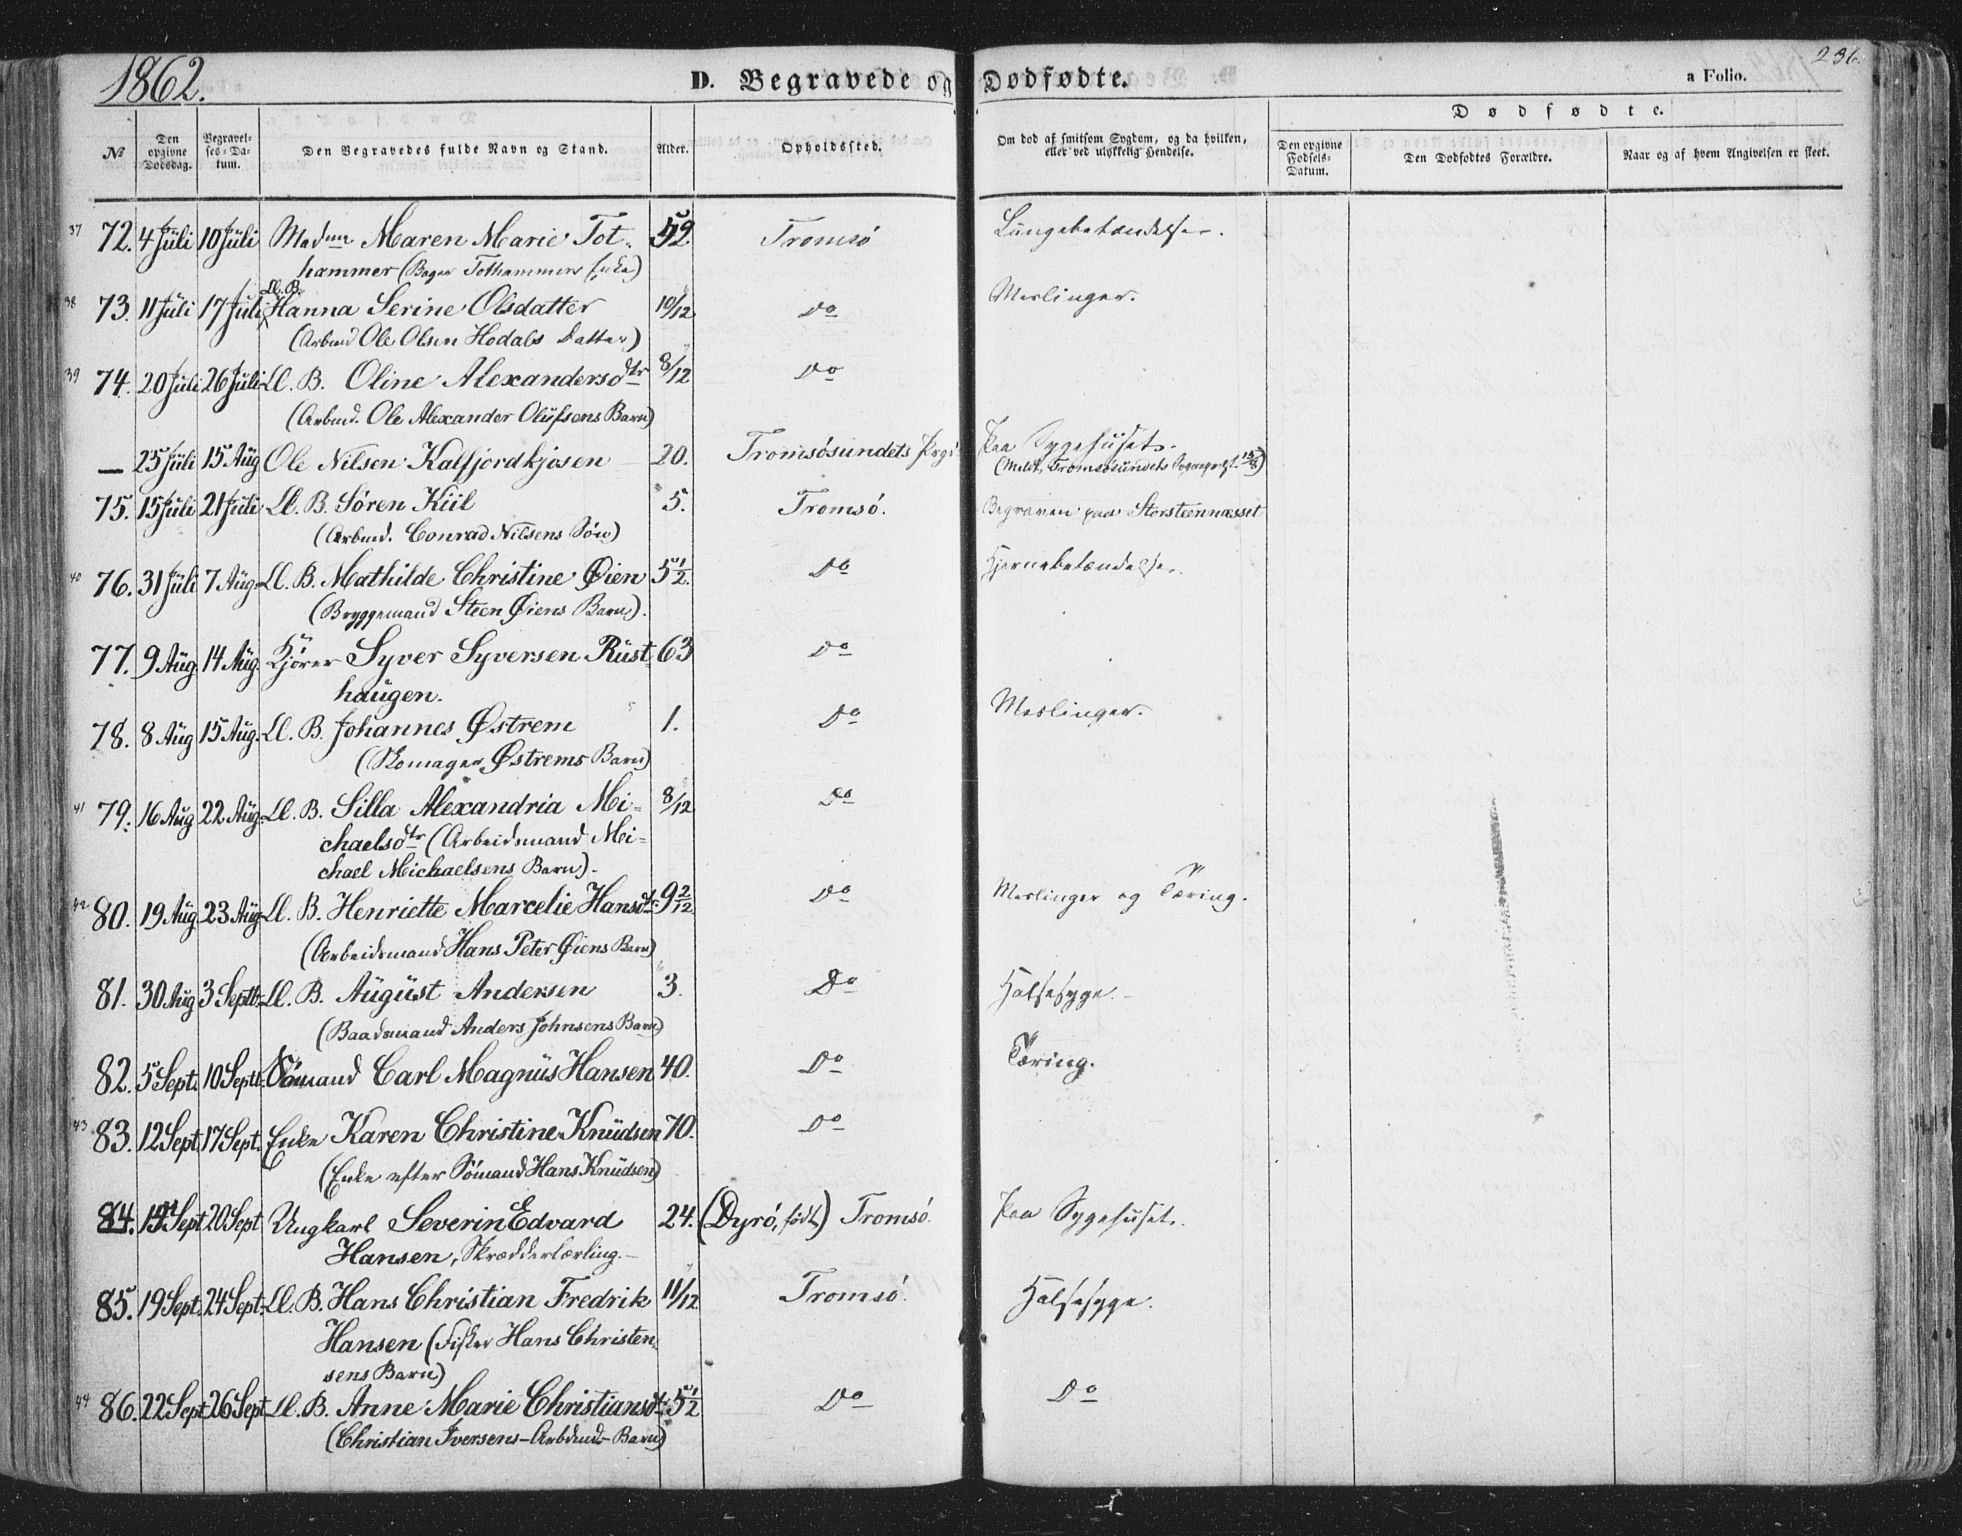 1862.
D. Begravede og Dødfødte.
a Folio.
236.
Dødfødte.
№
Den opgivne Dødsdag.
Begravelses-Datum.
Den Begravedes fulde Navn og Stand.
Alder.
Opholdssted.
Om død af smitsom Sygdom, og da hvilken, eller ved ulykkelig Hendelse.
Den opgivne Fødsels-Datum.
Den Dødfødtes Forældre.
Naar og af hvem Angivelsen er skeet.
37 72. 4 Juli 10 Juli Madme Maren Marie Tot- 52 Tromsö Lungebetændelse.
hammer (Bager Tothammers Enke)
38 73. 11 Juli 17 Juli Ll. B. Hanna Serine Olsdatter 10/12 Do Meslinger.
(Arbmd Ole Olsen Hodals Datter)
39 74. 20 Juli 26 Juli Ll. B. Oline Alexandersdtr 8/12 Do
(Arbmd. Ole Alexander Olufsens Barn)
— 25 Juli 15 Aug Ole Nilsen Kalfjordkjosen 20. Tromsösundets Prgj. Paa Sygehuset.
(Meldt Tromsösundets Sogneprest 15/8)
75. 15 Juli 21 Juli Ll. B. Sören Kiil 5. Tromsö. Begraven paa Storsteennæsset
(Arbmd. Conrad Nilsens Sön)
40 76. 31 Juli 7 Aug. Ll. B. Mathilde Christine Øien 5 1/2. Do Hjernebetændelse.
(Bryggemand Steen Øiens Barn).
77. 9 Aug. 14 Aug. Kjörer Syver Syversen Rust- 63 Do
haugen.
78. 8 Aug 15 Aug. Ll. B. Johannes Østrem 1. Do Meslinger.
(Skomager Østrems Barn)
41 79. 16 Aug 22 Aug. Ll. B. Silla Alexandria Mi- 8/12 Do
chaelsdtr (Arbeidsmand Mi-
chael Michaelsens Barn).
42 80. 19 Aug 23 Aug. Ll. B. Henriette Marcelie Hansdtr. 9 2/12 Do Meslinger og Tæring.
(Arbeidsmand Hans Peter Øiens Barn)
81. 30 Aug 3 Septb. Ll. B. August Andersen 3. Do Halssyge.
(Baadsmand Anders Johnsens Barn)
82. 5 Sept. 10 Septb. Sömand Carl Magnus Hansen 40. Do Tæring.
43 83. 12 Sept. 17 Sept. Enke Karen Christine Knudsen 70. Do
(Enke efter Sömand Hans Knudsen)
84. 14 Sept 20 Sept Ungkarl Severin Edvard 24. (Dyrö, födt) Tromsö. Paa Sygehuset.
Hansen, Skrædderlærling.
85. 19 Sept. 24 Sept. Ll. B. Hans Christian Fredrik 11/12 Tromsö. Halssyge.
Hansen (Fisker Hans Christen-
sens Barn)
44 86. 22 Sept 26 Sept Ll. B. Anne Marie Christiansdtr. 5 1/2 Do Do
(Christian Iversens - Arbdmd - Barn)